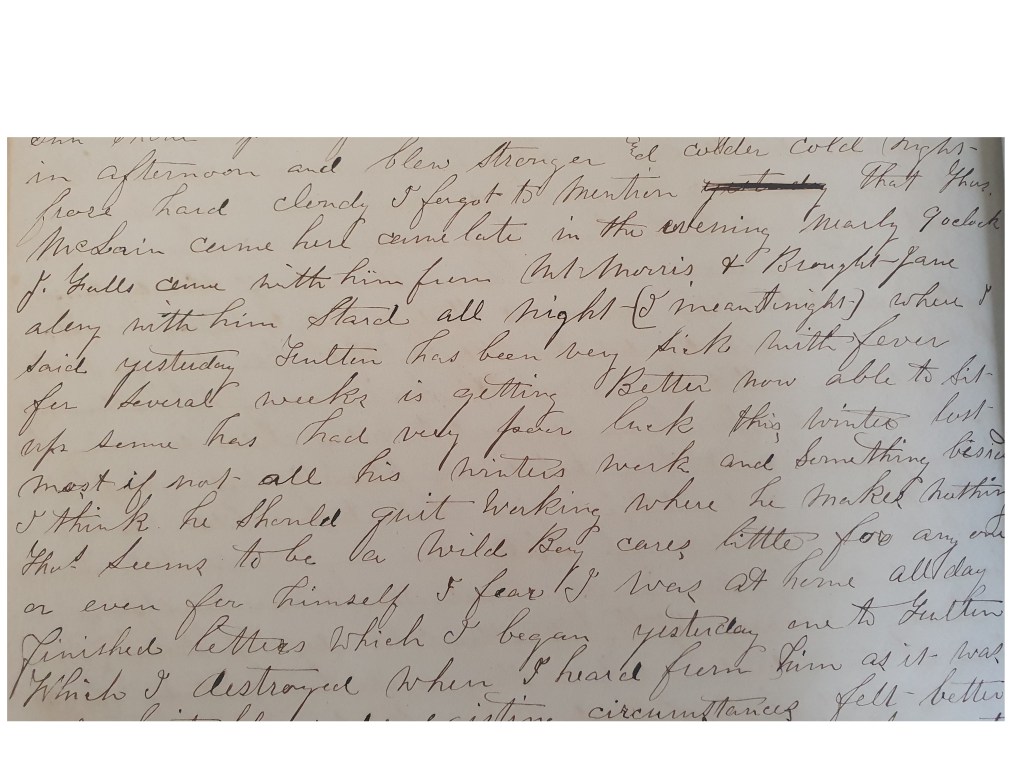 in afternoon and blew stronger &d colder cold night
froze hard cloudy I forgot to mention ~~yesterday~~ that Thos.
McLain came here came late in the evening nearly 9 oclock
J. Falls came with him from Mt Morris & Brought Jane
along with him Staid all night (I meant tonight) where I
said yesterday Fulton has been very sick with fever
for several weeks is getting Better now able to sit
up some has had very poor luck this winter lost
most if not all his winters work and something besid
I think he should quit working where he makes nothin
Thos seems to be a wild Boy cares little for any one
or even for himself I fear I was at home all day
finished letters which I began yesterday one to Fulton
Which I destroyed when I heard from him as it was
circumstances felt better